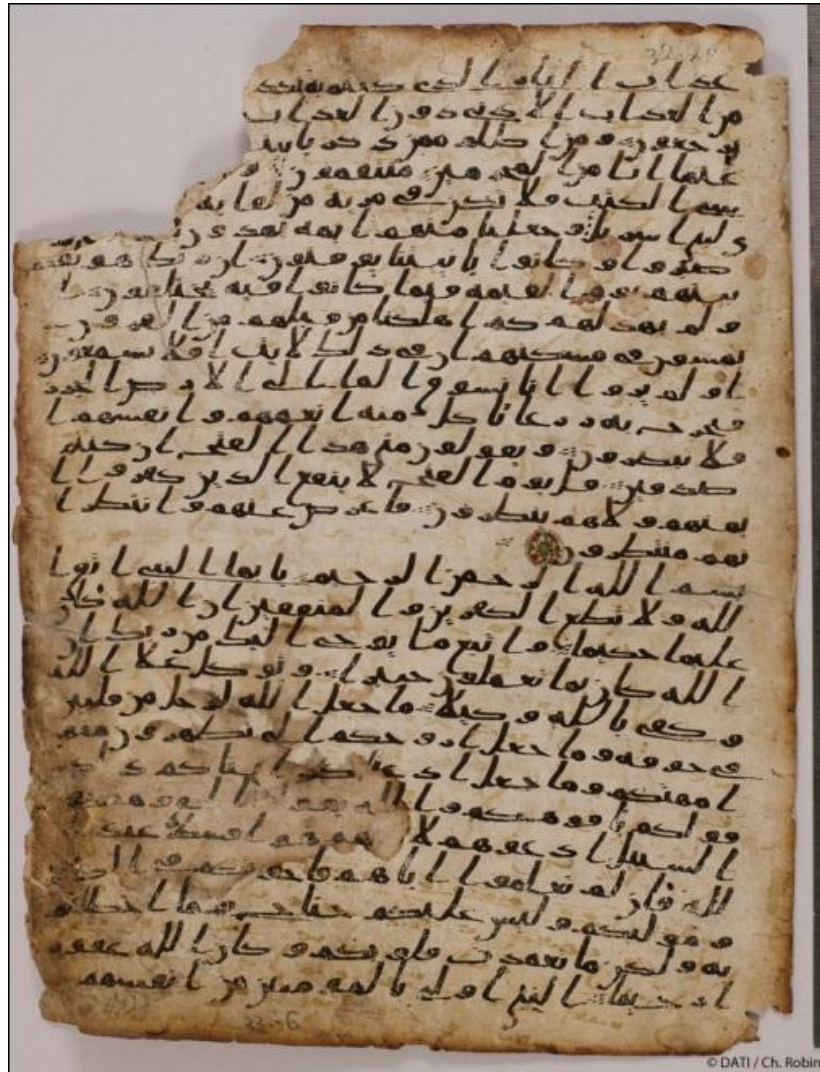 32-20
عذاب النار الذي كنتم به تكذ
من العذاب الادنى دون العذاب
يرجعون ومن اظلم ممن ذكر بايت
عنها انا من المجرمين منتقمون و
موسى الكتب فلا تكن في مرية من لقايه
لبني اسريل وجعلنا منهم ايمة يهدون
صبروا وكانوا بايتنا يوقنون ان ربك هو يفصل
بينهم يوم القيمة فيما كانوا فيه يختلفون ا
ولم يهد لهم كم اهلكنا من قبلهم من القرون
يمشون في مسكنهم ان في ذلك لايت افلا يسمعون
اولم يروا انا نسوق الما الى الارض الجرز
فنخرج به زرعا تاكل منه انعمهم وانفسهم ا
فلا يبصرون ويقولون متى هذا الفتح ان كنتم
صدقين قل يوم الفتح لا ينفع الذين كفروا ا
يمنهم ولا هم ينظرون فاعرض عنهم وانتظر ا
نهم منتظرون
بسم الله الرحمن الرحيم يايها النبي اتق ا
لله ولا تطع الكفرين والمنفقين ان الله كان
عليما حكيما واتبع ما يوحى اليك من ربك ان
الله كان بما تعملون خبيرا وتوكل علا الله
وكفى بالله وكيلا ما جعل الله لرجل من قلبين
في جوفه وما جعل ازوجكم الى تظهرون منهن
امهتكم وما جعل ادعياكم ابناكم ذلكم
قولكم بافوهكم والله يقول الحق وهو يهدى
السبيل ادعوهم لابايهم هو اقسط عند ا
لله فان لم تعلموا اباهم فاخونكم في الدين
وموليكم وليس عليكم جناح فيما اخطاتم
به ولكن ما تعمدت قلوبكم وكان الله غفورا
رحيما النبي اولى بالمومنين من انفسهم
33-6
© DATI / Ch. Robin